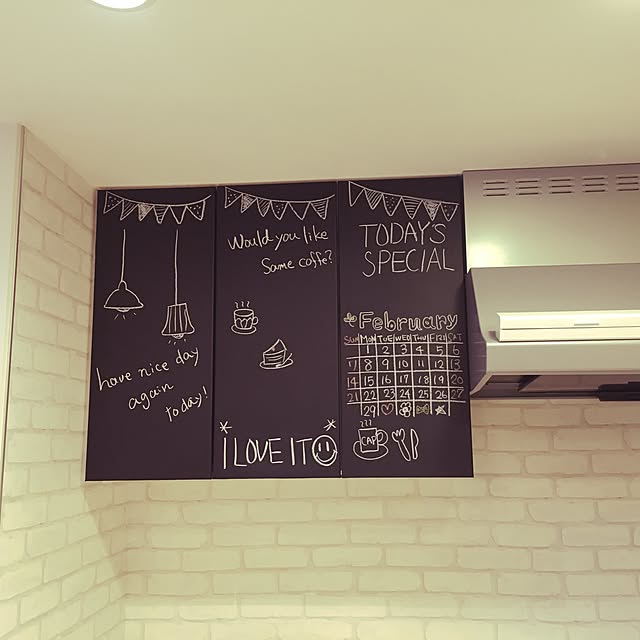 have nice day
again
today!
Would you like
Same coffe?
I LOVE IT
TODAY'S
SPECIAL
February
SUN MON TUE WED THU FRI SAT
1 2 3 4 5 6
7 8 9 10 11 12 13
14 15 16 17 18 19 20
21 22 23 24 25 26 27
29
CAP